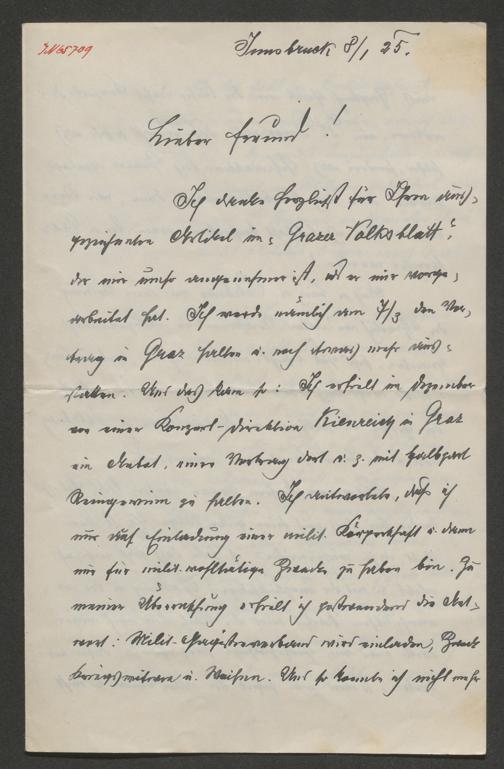 I.N 65709
Innsbruck 8/1 25.
Lieber Freund!
Ich danke herzlichst für Ihren aus-
gezeichneten Artikel im "Grazer Volksblatt",
der mir umso angenehmer ist, als er mir vorge-
arbeitet hat. Ich werde nämlich am 7/3 den Vor-
trag in Graz halten u. noch etwas mehr aus-
. Und das kam so: Ich erhielt im Dezember
von einer Konzert-Direktion Kienreich in Graz
ein Anbot, einen Vortrag dort u. z. mit halbpart
Reingewinn zu halten. Ich antwortete, daß ich
nur auf Einladung einer milit. Körperschaft u. dann
nur für milit. wohltätige Zwecke zu haben bin. Zu
meiner Überraschung erhielt ich postwendend die Ant-
wort: Milit. wird einladen, Zweck
Kriegswitwen u. Waisen. Und so konnte ich nicht mehr